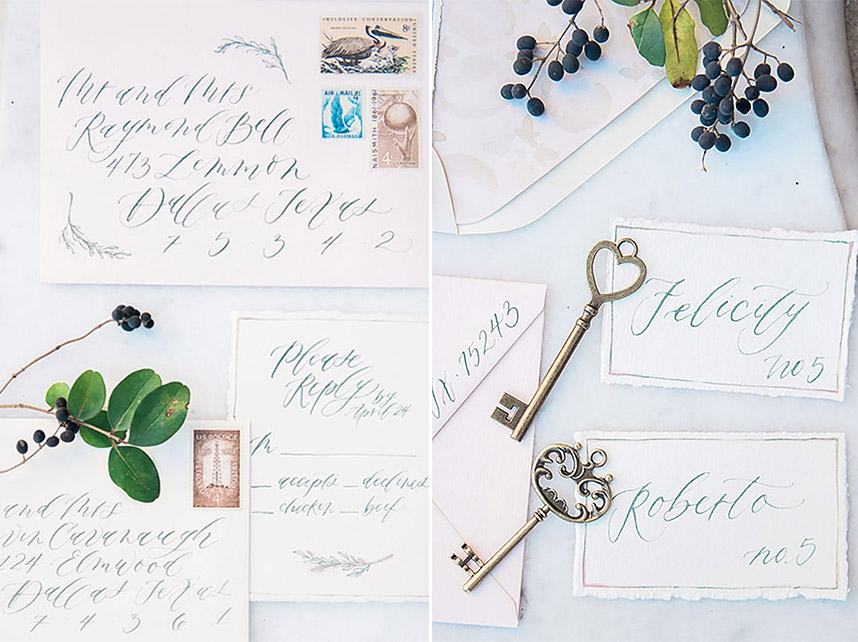 Mr and Mrs
Raymond Bell
473 Lemmon
Dallas Texas
7 5 3 4 2
WILDLIFE CONSERVATION
8¢
UNITED STATES
AIR MAIL
NAISMITH 1861-1961
4¢
Please
Reply by
April 24
M
accepts declines
chicken beef
U.S. POSTAGE
4¢
and Mrs
Cavanaugh
124 Elmwood
Dallas Texas
7 4 3 6 1
TX. 75243
Felicity
no. 5
Roberto
no. 5